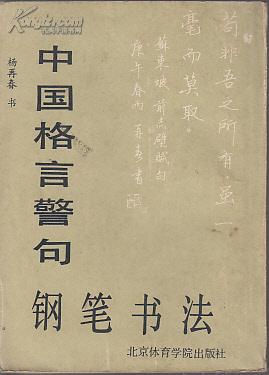 苟非吾之所有，虽一
毫而莫取。
苏东坡前赤壁赋句
庚午春雨再春书
杨再春 书
中国格言警句
钢笔书法
北京体育学院出版社